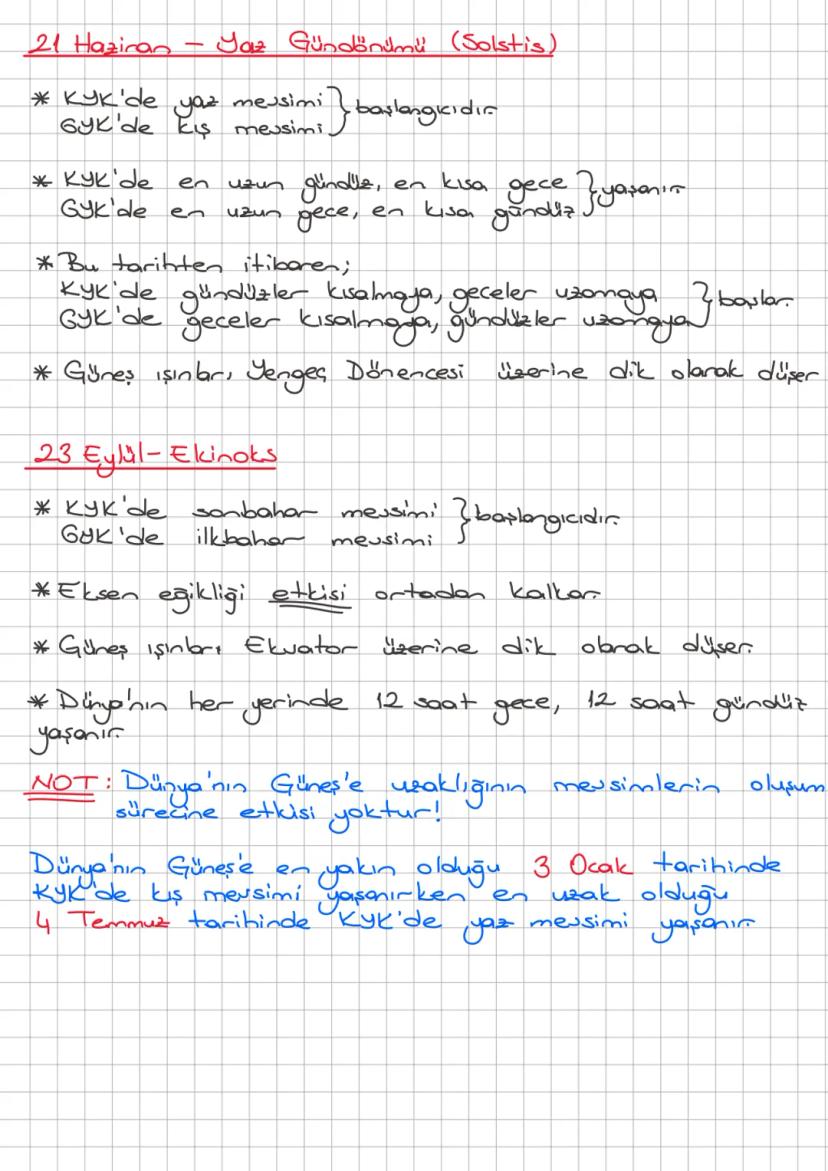 21 Haziran - Yaz Gündönümü (Solstis)
* KYK'de yaz mevsimi } başlangıcıdır.
GYK'de kış mevsimi
* KYK'de en uzun gündüz, en kısa gece } yaşanır
GYK'de en uzun gece, en kısa gündüz
* Bu tarihten itibaren;
KYK'de gündüzler kısalmaya, geceler uzamaya } başlar.
GYK'de geceler kısalmaya, gündüzler uzamaya
* Güneş ışınları, Yengeç Dönencesi üzerine dik olarak düşer
23 Eylül - Ekinoks
* KYK'de sonbahar mevsimi } başlangıcıdır.
GYK'de ilkbahar mevsimi
* Eksen eğikliği etkisi ortadan kalkar.
* Güneş ışınları Ekvator üzerine dik olarak düşer.
* Dünya'nın her yerinde 12 saat gece, 12 saat gündüz
yaşanır.
NOT: Dünya'nın Güneş'e uzaklığının mevsimlerin oluşum
sürecine etkisi yoktur!
Dünya'nın Güneş'e en yakın olduğu 3 Ocak tarihinde
KYK'de kış mevsimi yaşanırken en uzak olduğu
4 Temmuz tarihinde KYK'de yaz mevsimi yaşanır.